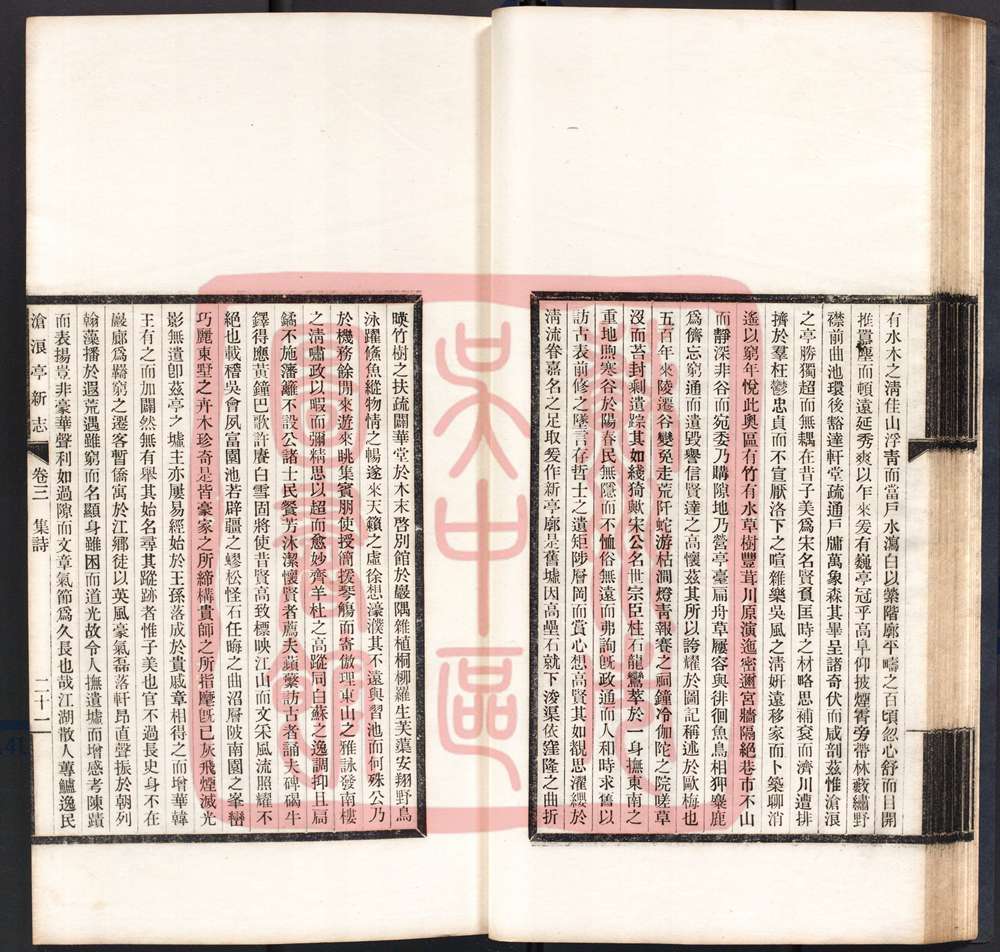 有水木之清住山浮青而當戶水瀉白以縈階廓平疇之百頃忽心舒而目開
推囂塵而頓遠延秀爽以乍來爰有巍亭冠乎高阜仰披煙霄旁帶林藪繡野
襟前曲池環後豁達軒堂疏通戶牖萬象森其畢呈諸奇伏而咸剖茲惟滄浪
之亭勝獨超而無耦在昔子美爲宋名賢負匡時之材略思補袞而濟川遭排
擠於羣枉鬱忠貞而不宣厭洛下之喧雜樂吳風之清妍遠移家而卜築聊消
遙以窮年悅此奧區有竹有水草樹豐茸川原演迤密邇宮牆隔絕巷市不山
而靜深非谷而宛委乃購隙地乃營亭臺扁舟草屨容與徘徊魚鳥相狎麋鹿
爲儕忘窮通而遣毀譽信賢達之高懷茲其所以誇耀於圖記稱述於歐梅也
五百年來陵遷谷變兔走荒阡蛇游枯澗燈靑報賽之祠鐘冷伽陀之院嗟草
沒而苔封剩遺踪其如綫猗歟宋公名世宗臣柱石龍鸞萃於一身撫東南之
重地煦寒谷於陽春民無隱而不恤俗無遠而弗詢旣政通而人和時求舊以
訪古表前修之墜言存哲士之遺矩陟層岡而賞心想高賢其如覩思濯纓於
淸流眷嘉名之足取爰作新亭廓是舊墟因高壘石就下浚渠依窪隆之曲折
暎竹樹之扶疏闢華堂於木末啓別館於巖隅雜植桐柳羅生芙蕖安翔野鳥
泳躍鯈魚縱物情之暢遂來天籟之虛徐想濠濮其不遠與習池而何殊公乃
於機務餘閒來遊來眺集賓朋使授簡援琴觴而寄傲理東山之雅詠發南樓
之淸嘯政以暇而彌精思以超而愈妙齊羊杜之高蹤同白蘇之逸調抑且扃
鐍不施藩籬不設公諸士民餐芳沐潔懷賢者薦夫蘋蘩訪古者誦夫碑碣牛
鐸得應黃鐘巴歌許賡白雪固將使昔賢高致標映江山而文采風流照耀不
絕也載稽吳會夙富園池若辟疆之蟉松怪石任晦之曲沼層陂南園之峯巒
巧麗東墅之卉木珍奇是皆豪家之所締構貴師之所指麾旣已灰飛煙滅光
影無遺卽茲亭之墟主亦屢易經始於王孫落成於貴戚章相得之而增華韓
王有之而加闢然無有舉其始名尋其蹤跡者惟子美也官不過長史身不在
巖廊爲羇窮之遷客暫僑寓於江鄉徒以英風豪氣磊落軒昂直聲振於朝列
翰藻播於遐荒遇雖窮而名顯身雖困而道光故令人撫遺墟而增感考陳蹟
而表揚豈非豪華聲利如過隙而文章氣節爲久長也哉江湖散人蓴鱸逸民
滄浪亭新志 卷三 集詩 二十一
吳中區